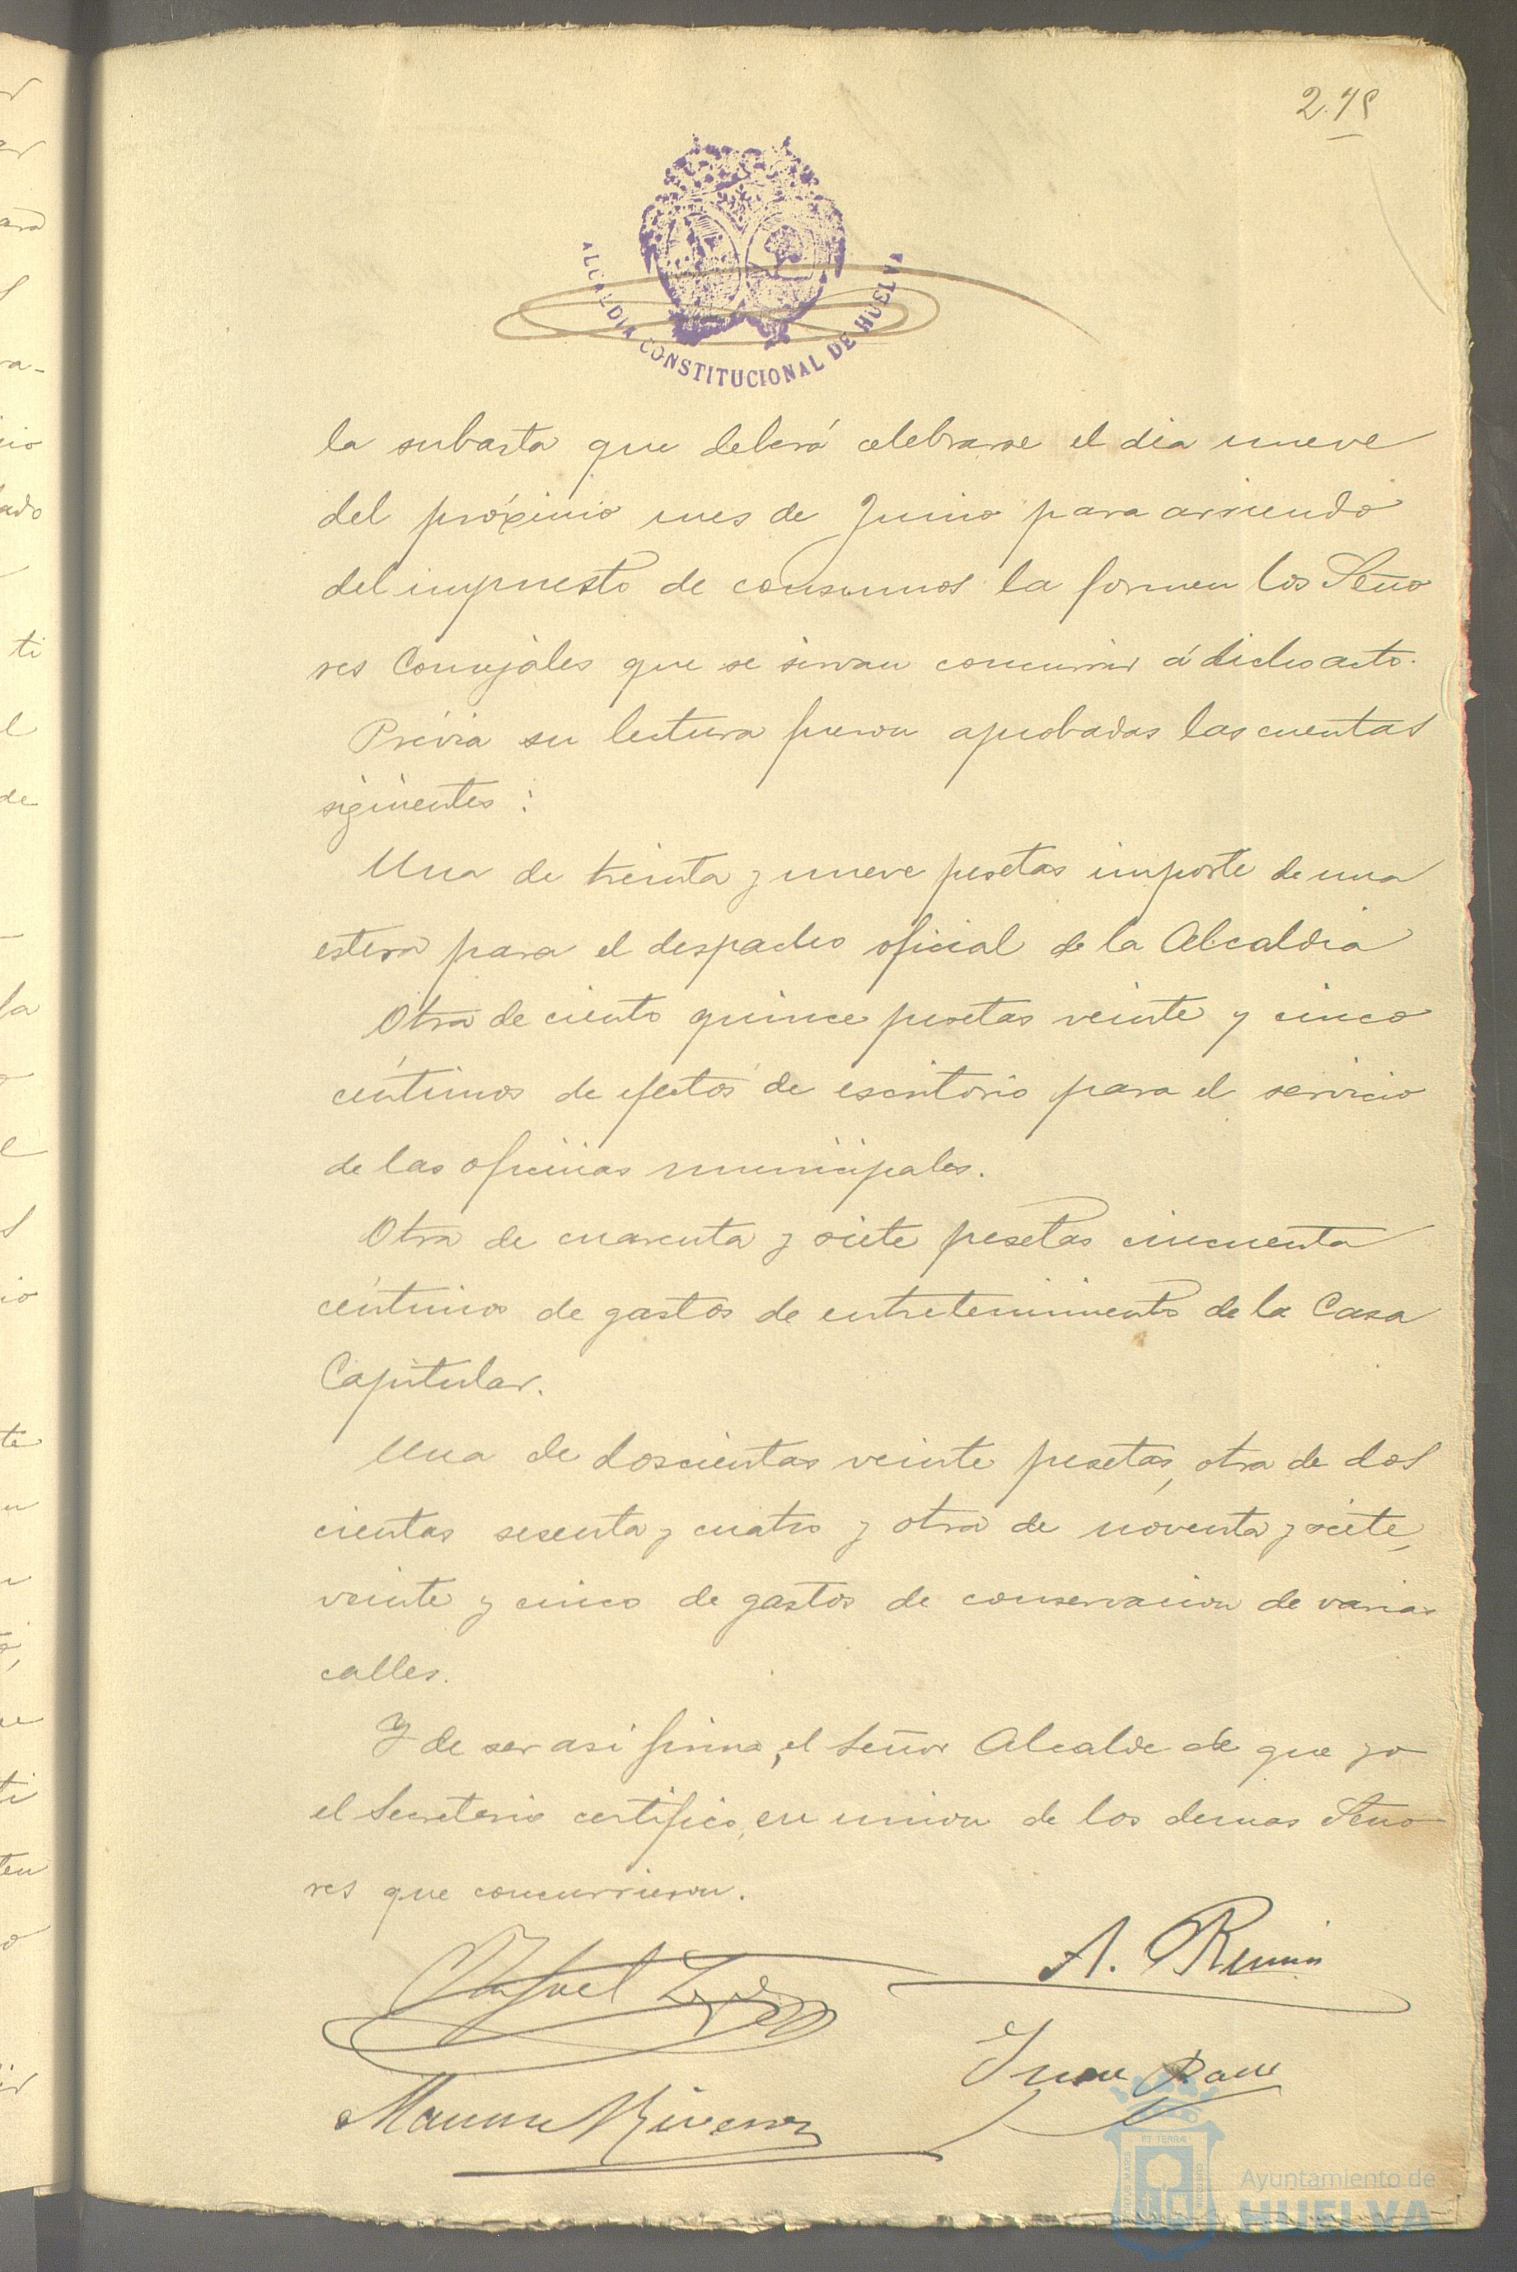 ALCALDIA CONSTITUCIONAL DE HUELVA
la subasta que deberá celebrarse el dia nueve
del próximo mes de Junio para arriendo
del impuesto de consumos la formen los Seño
res Concejales que se sirvan concurrir á dicho acto.
Prévia su lectura fueron aprobadas las cuentas
siguientes:
Una de treinta y nueve pesetas importe de una
estera para el despacho oficial de la Alcaldia
Otra de ciento quince pesetas veinte y cinco
céntimos de efectos de escritorio para el servicio
de las oficinas municipales.
Otra de cuarenta y siete pesetas cincuenta
céntimos de gastos de entretenimiento de la Casa
Capitular.
Una de doscientas veinte pesetas, otra de dos
cientas sesenta y cuatro y otra de noventa y siete,
veinte y cinco de gastos de conservacion de varias
calles.
Y de ser asi firma, el Señor Alcalde de que yo
el Secretario certifico, en union de los demas Seño
res que concurrieron.
A.
Manuel Rivera
Juan
Ayuntamiento de
HUELVA